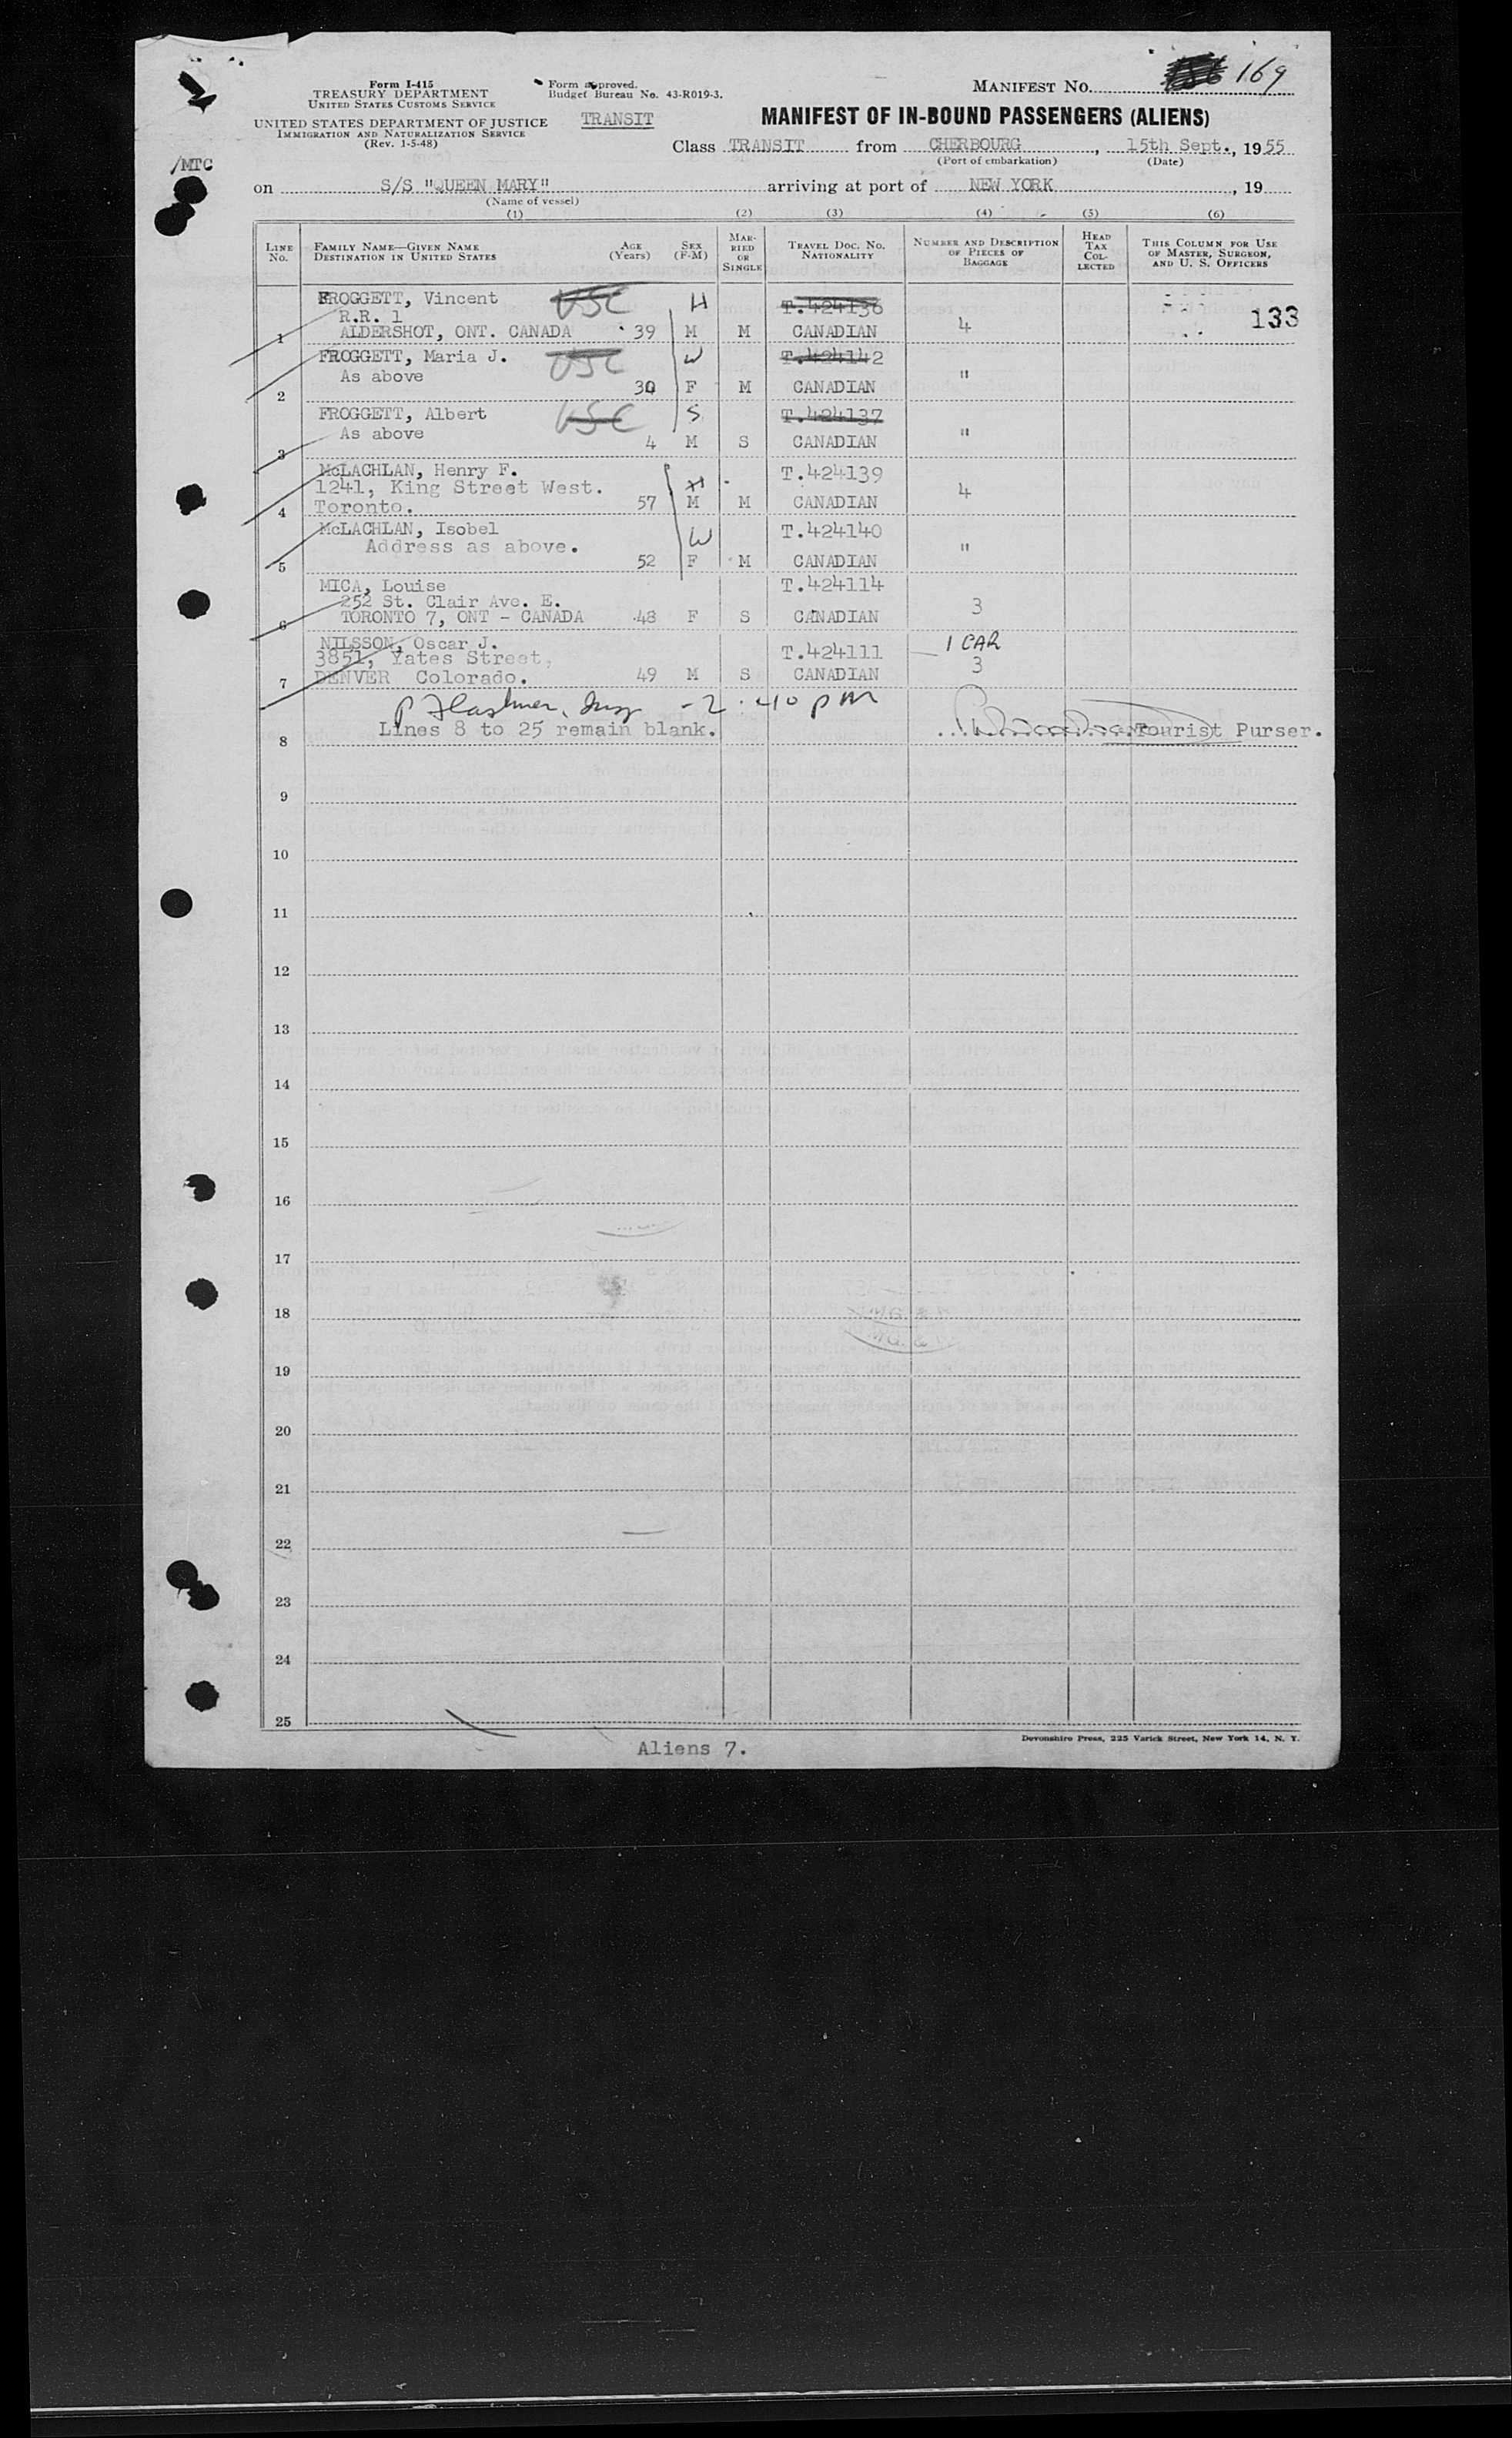 Form I-415
TREASURY DEPARTMENT
UNITED STATES CUSTOMS SERVICE
UNITED STATES DEPARTMENT OF JUSTICE
IMMIGRATION AND NATURALIZATION SERVICE
(Rev. 1-5-48)
/MTC
Form approved.
Budget Bureau No. 43-R019-3.
TRANSIT
MANIFEST No. 169
MANIFEST OF IN-BOUND PASSENGERS (ALIENS)
Class TRANSIT from CHERBOURG, 15th Sept., 1955
(Port of embarkation) (Date)
on S/S "QUEEN MARY" arriving at port of NEW YORK, 19
(Name of vessel)
(1) (2) (3) (4) (5) (6)
LINE No. FAMILY NAME—GIVEN NAME DESTINATION IN UNITED STATES AGE (Years) SEX (F-M) MARRIED OR SINGLE TRAVEL DOC. No. NATIONALITY NUMBER AND DESCRIPTION OF PIECES OF BAGGAGE HEAD TAX COLLECTED THIS COLUMN FOR USE OF MASTER, SURGEON, AND U. S. OFFICERS
FROGGETT, Vincent USC H T.424136
R.R. 1 133
1 ALDERSHOT, ONT. CANADA 39 M M CANADIAN 4
FROGGETT, Maria J. USC W T.424142
As above "
2 30 F M CANADIAN
FROGGETT, Albert USC S T.424137
As above "
3 4 M S CANADIAN
McLACHLAN, Henry F. H T.424139
1241, King Street West. 4
4 Toronto. 57 M M CANADIAN
McLACHLAN, Isobel W T.424140
Address as above. "
5 52 F M CANADIAN
MICA, Louise T.424114
252 St. Clair Ave. E. 3
6 TORONTO 7, ONT - CANADA 48 F S CANADIAN
NILSSON, Oscar J. 1 CAR
3851, Yates Street, T.424111 3
7 DENVER Colorado. 49 M S CANADIAN
-2.40 pm
Lines 8 to 25 remain blank. Tourist Purser.
8
9
10
11
12
13
14
15
16
17
18
19
20
21
22
23
24
25
Devonshire Press, 225 Varick Street, New York 14, N. Y.
Aliens 7.